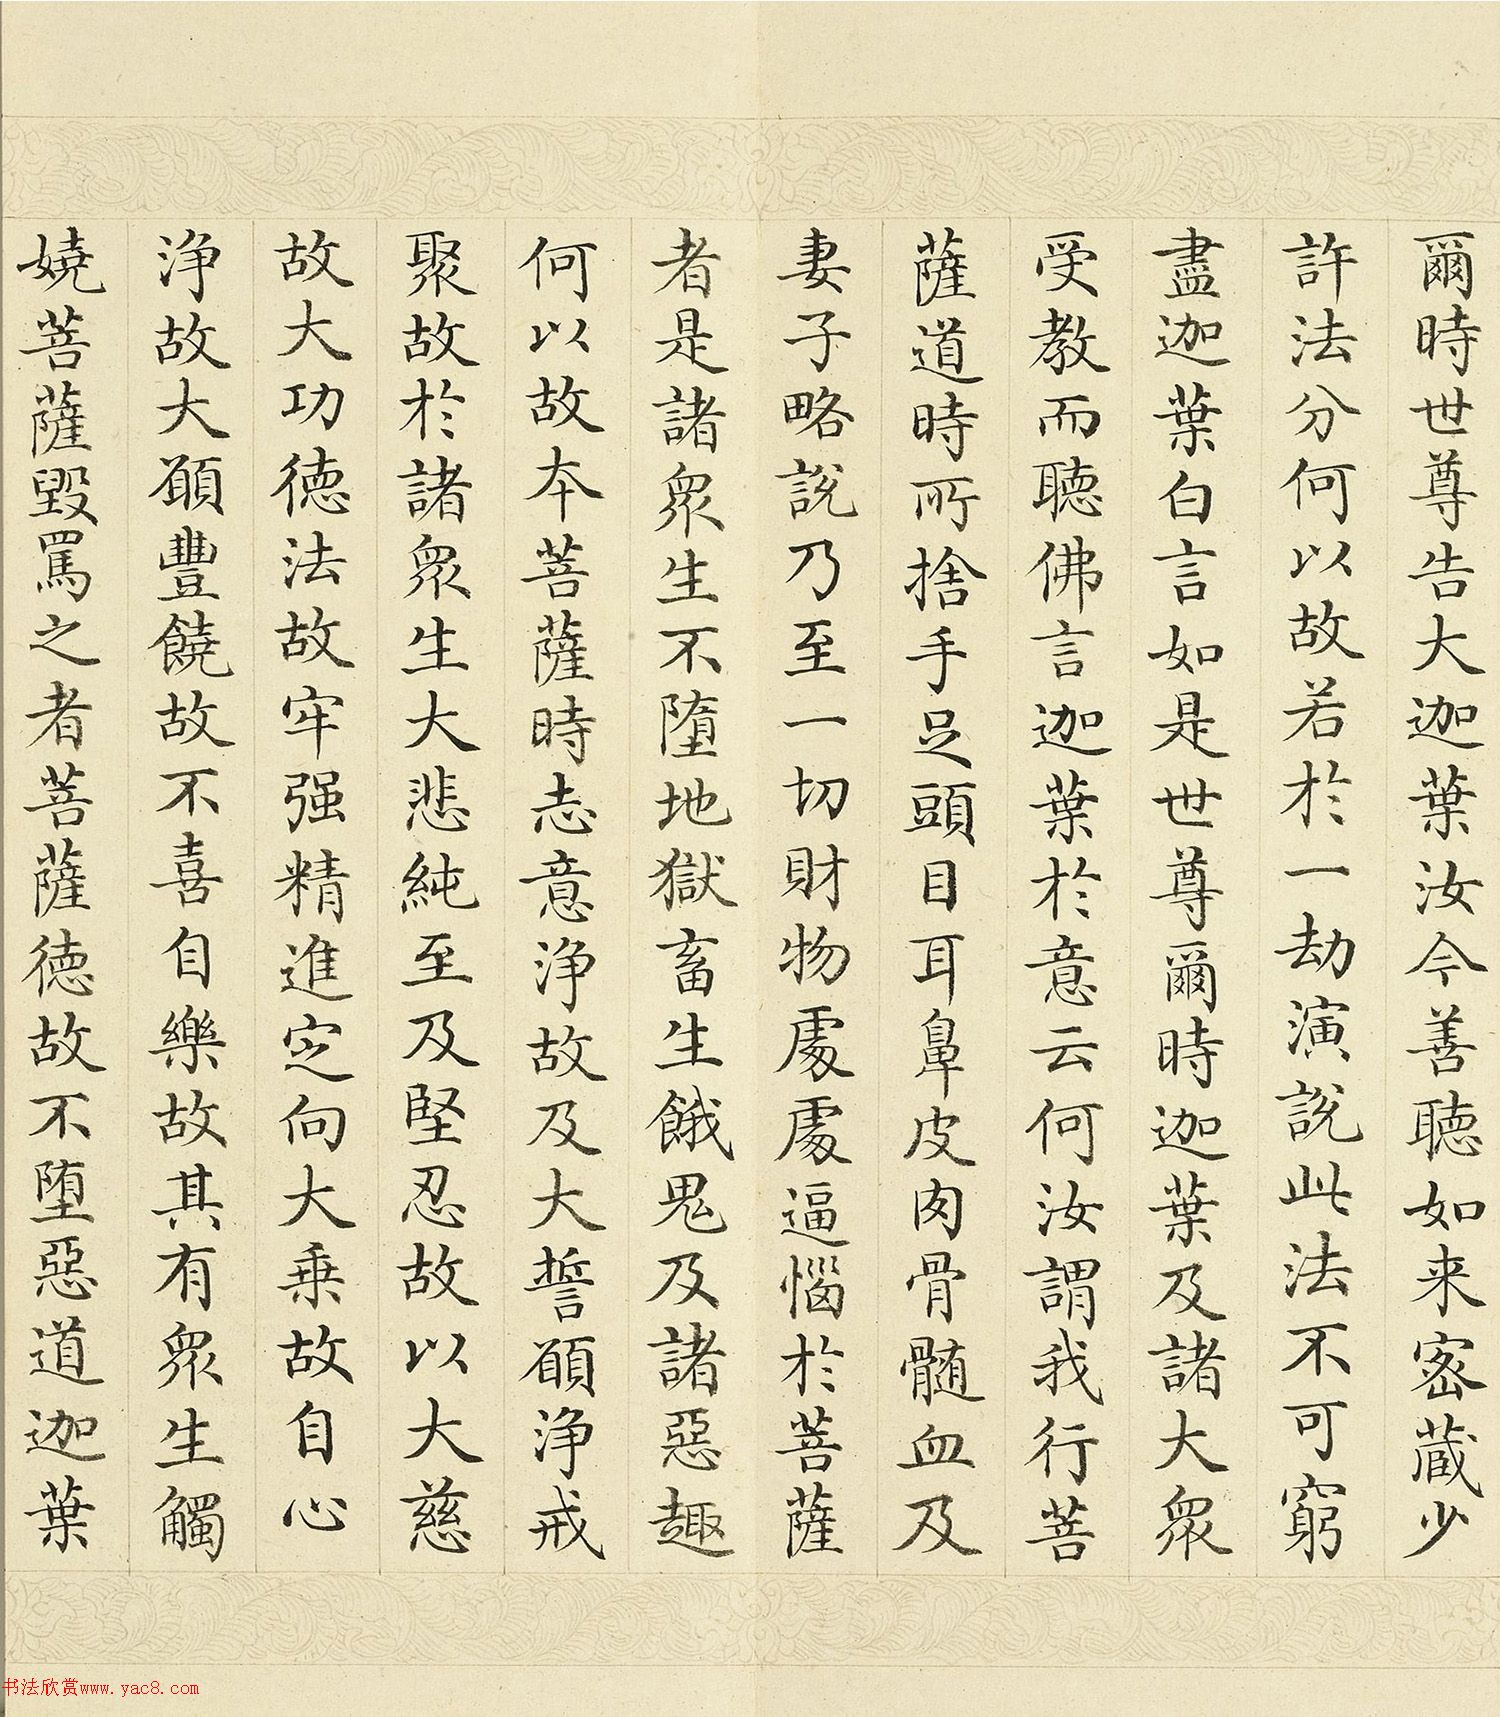 爾時世尊告大迦葉汝今善聽如来密蔵少
許法分何以故若於一劫演説此法不可窮
盡迦葉白言如是世尊爾時迦葉及諸大衆
受教而聽佛言迦葉於意云何汝謂我行菩
薩道時所捨手足頭目耳鼻皮肉骨髓血及
妻子略説乃至一切財物處處逼惱於菩薩
者是諸衆生不墮地獄畜生餓鬼及諸惡趣
何以故本菩薩時志意淨故及大誓願淨戒
聚故於諸衆生大悲純至及堅忍故以大慈
故大功德法故牢强精進定向大乗故自心
淨故大願豐饒故不喜自樂故其有衆生觸
嬈菩薩毀罵之者菩薩德故不堕惡道迦葉
书法欣赏www.yac8.com